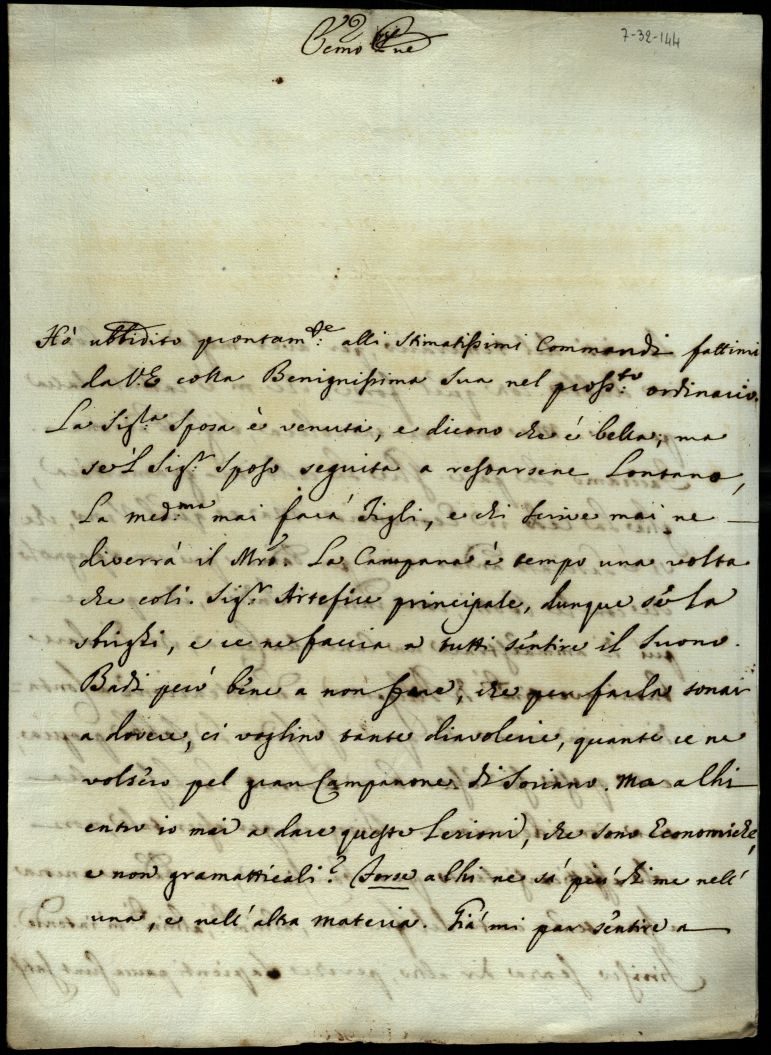 7-32-144
Ecmo Pne
Hò ubbidito prontam.te alli stimatissimi Commandi fattimi
da V.E colla Benignissima sua nel pross.to ordinario.
La Sig.ra Sposa è venuta, e dicono che è bella; ma
se'l Sig.r Sposo seguita a restarsene Lontano,
La med.ma mai farà Figli, e chi scrive mai ne
diverrà il Mro. La Campana è tempo una volta
che coli. Sig.r Artefice principale, dunque se la
sbrighi, e ce ne faccia a tutti sentire il suono.
Badi però bene a non, che per farla sonar
a dovere, ci voglino tante diavolerie, quante ce ne
volsero pel gran Campanone di Soriano. Ma a chi
entro io mai a dare queste Lezioni, che sono Economiche,
e non gramatticali? Forse a chi ne sà più di me nell'
una, e nell'altra materia. Già mi par sentire a